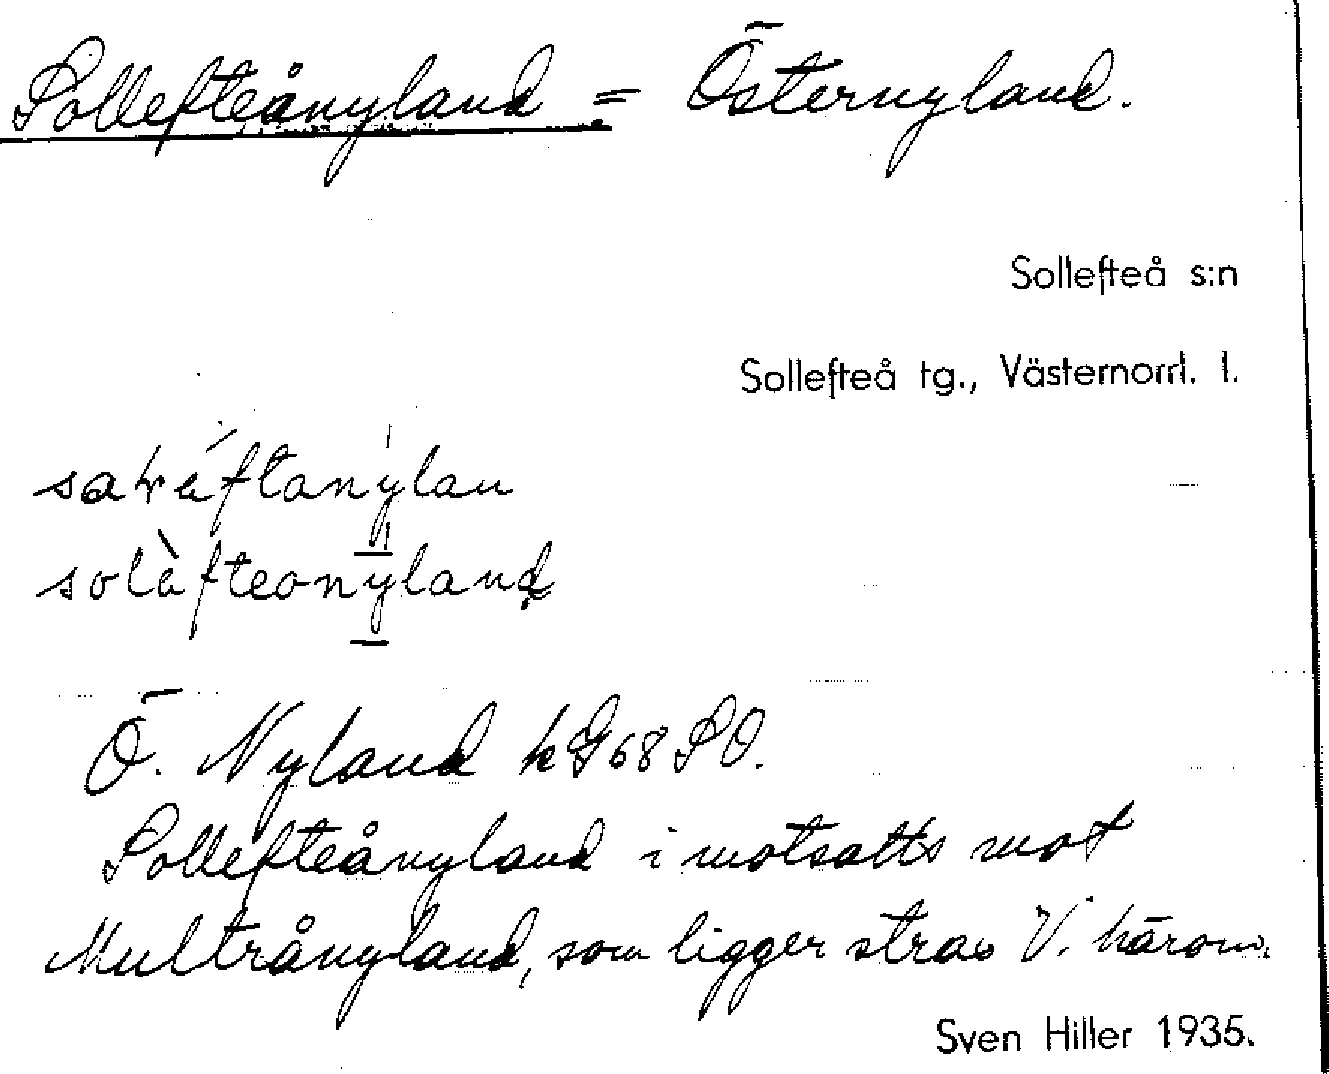 Sollefteånyland = Östernyland.
Sollefteå s:n
Sollefteå tg., Västernorrl. l.
solèfteonyland
Ö. Nyland k G68 SO.
Sollefteånyland i motsatts mot
Multrånyland, som ligger strax V. härom.
Sven Hiller 1935.